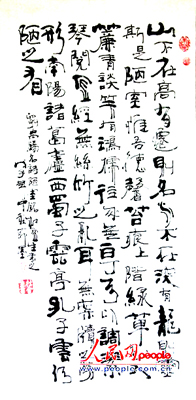 山不在高有僊則名水不在深有龍則靈
斯是陋室惟吾德馨苔痕上階綠草入
簾青談笑有鴻儒往來無白丁可以調素
琴閱金經無絲竹之亂耳無案牘之勞
形南陽諸葛廬西蜀子雲亭孔子云何
陋之有
人民网 people